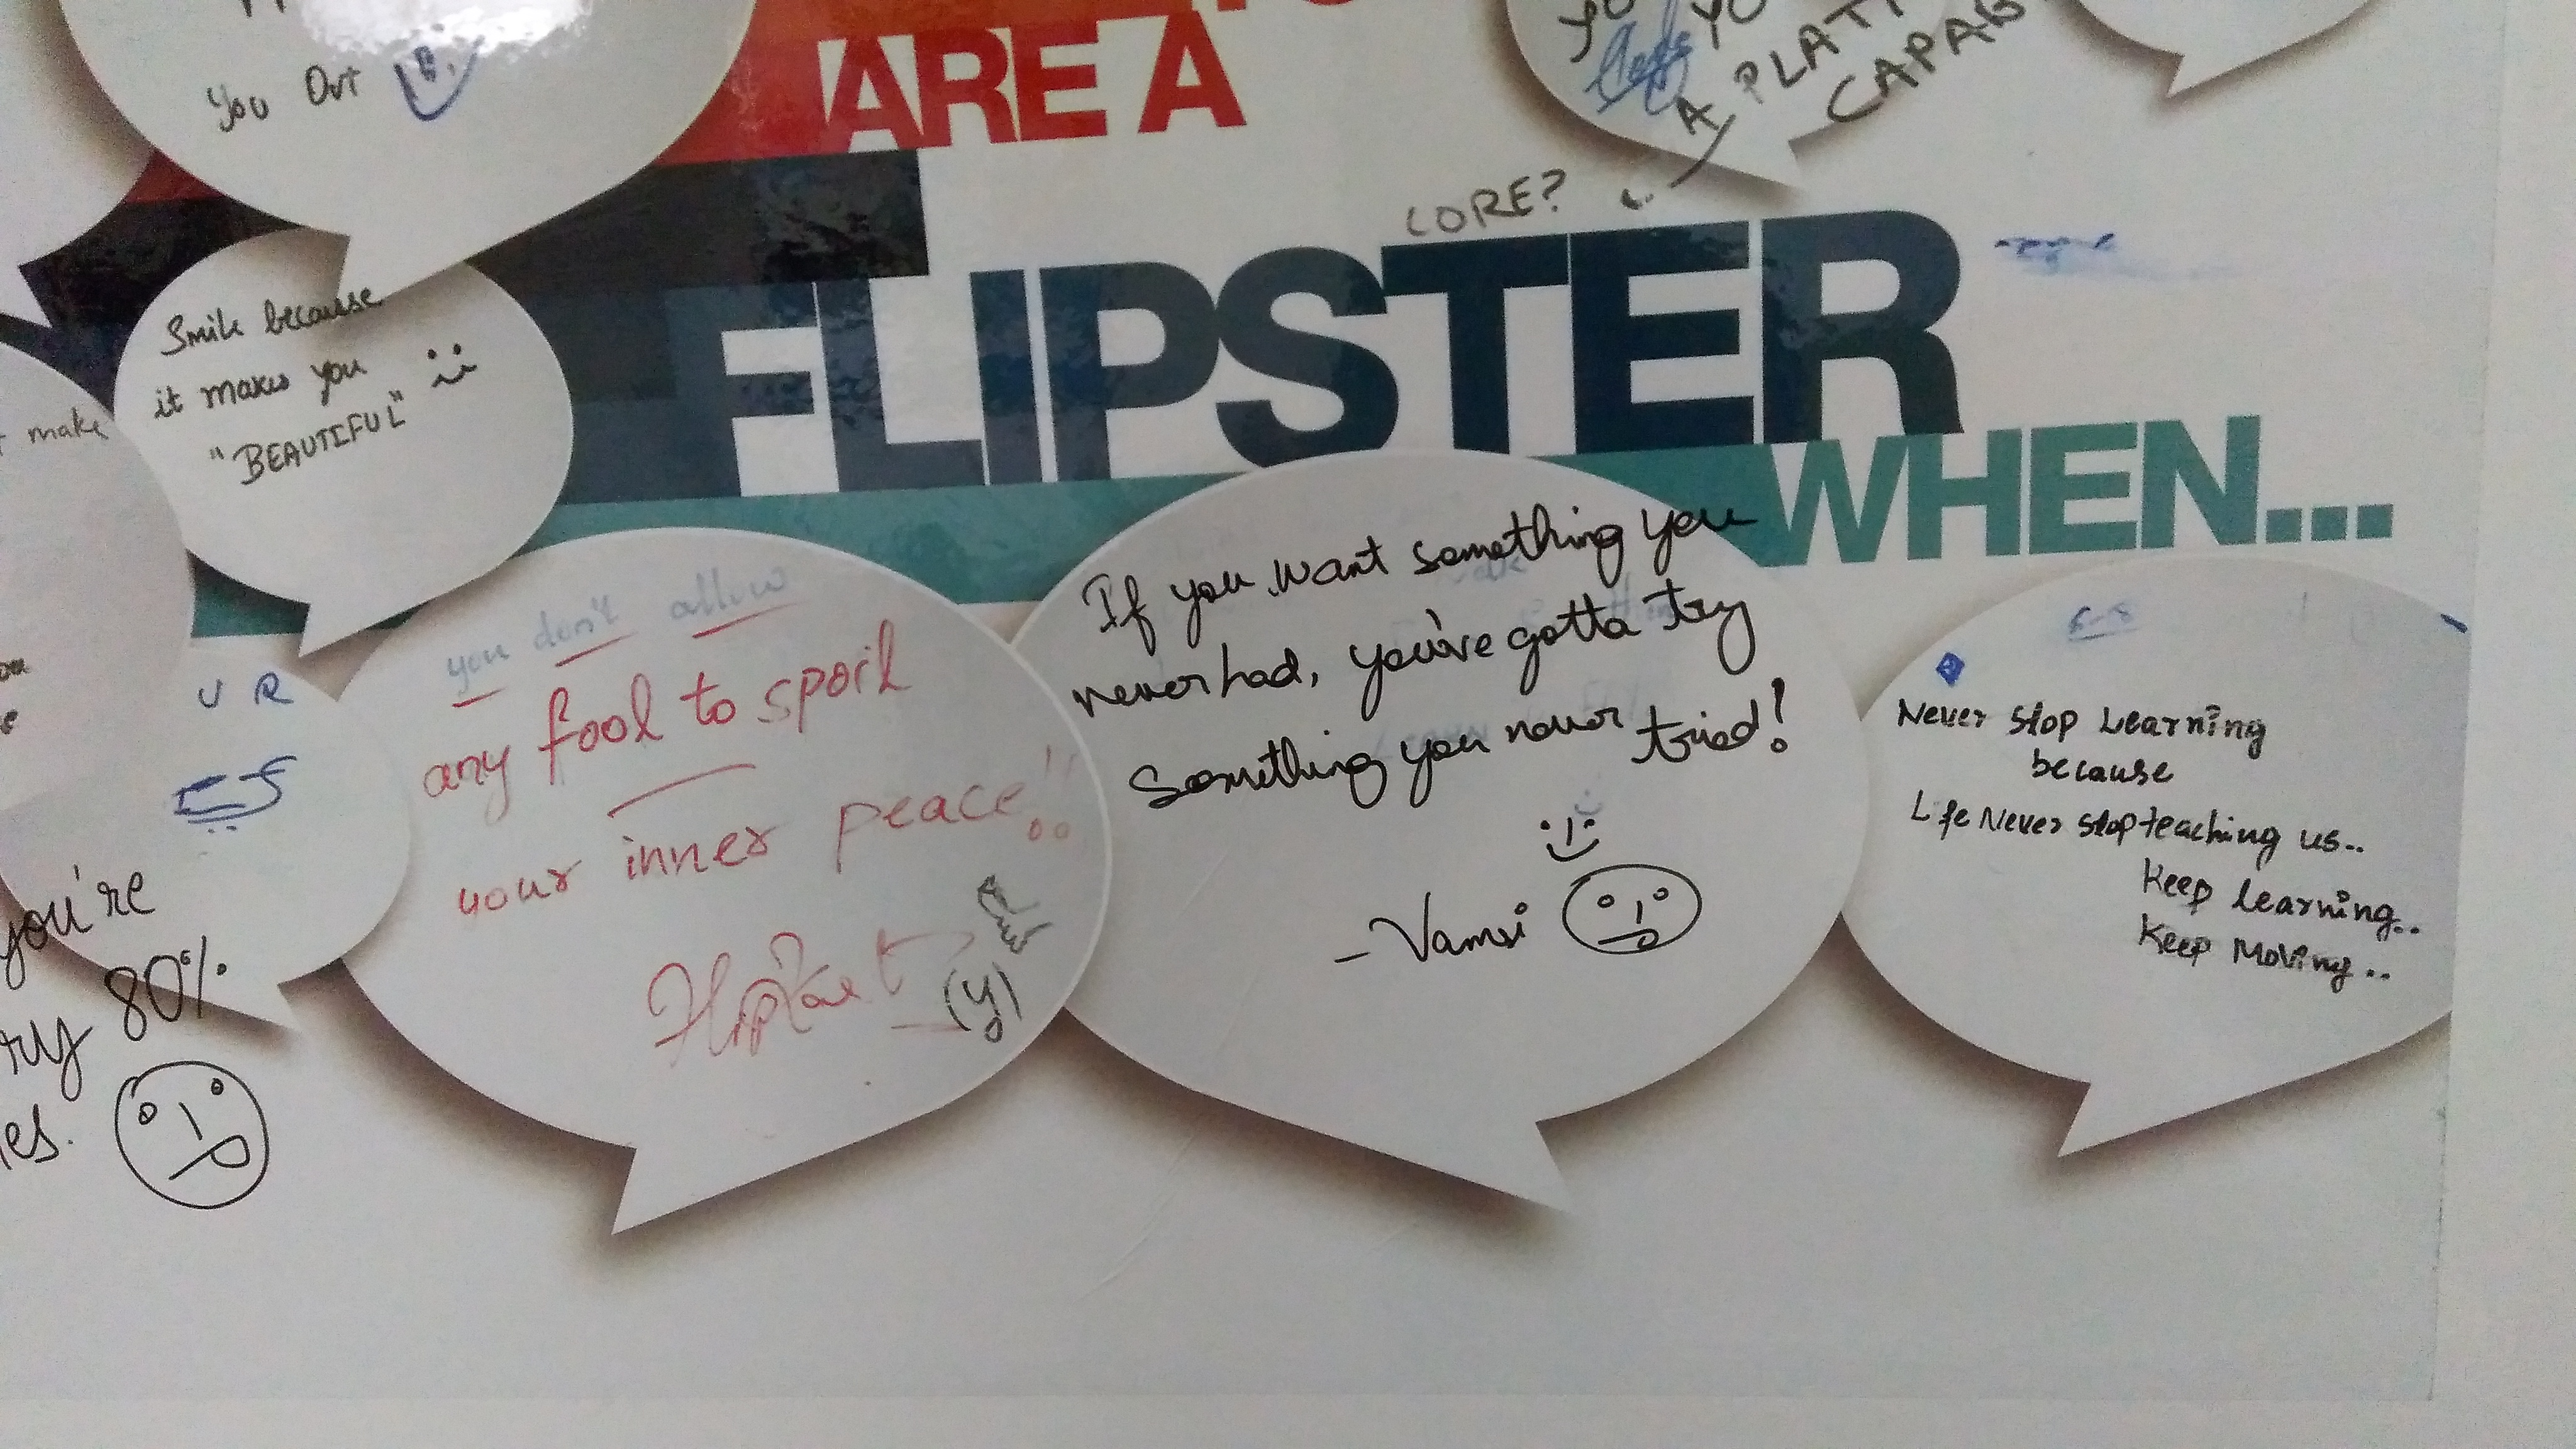 ARE A
FLIPSTER
WHEN...
You Out
A PLAT
CAPAB
CORE?
Smile because
it makes you
"BEAUTIFUL"
make
U R
you're
80%
you don't allow
any fool to spoil
your inner peace!!
Flipkart
(y)
If you want something you
never had, you've gotta try
Something you never tried!
- Vamsi
Never stop Learning
because
Life Never stop teaching us..
Keep learning..
Keep Moving..